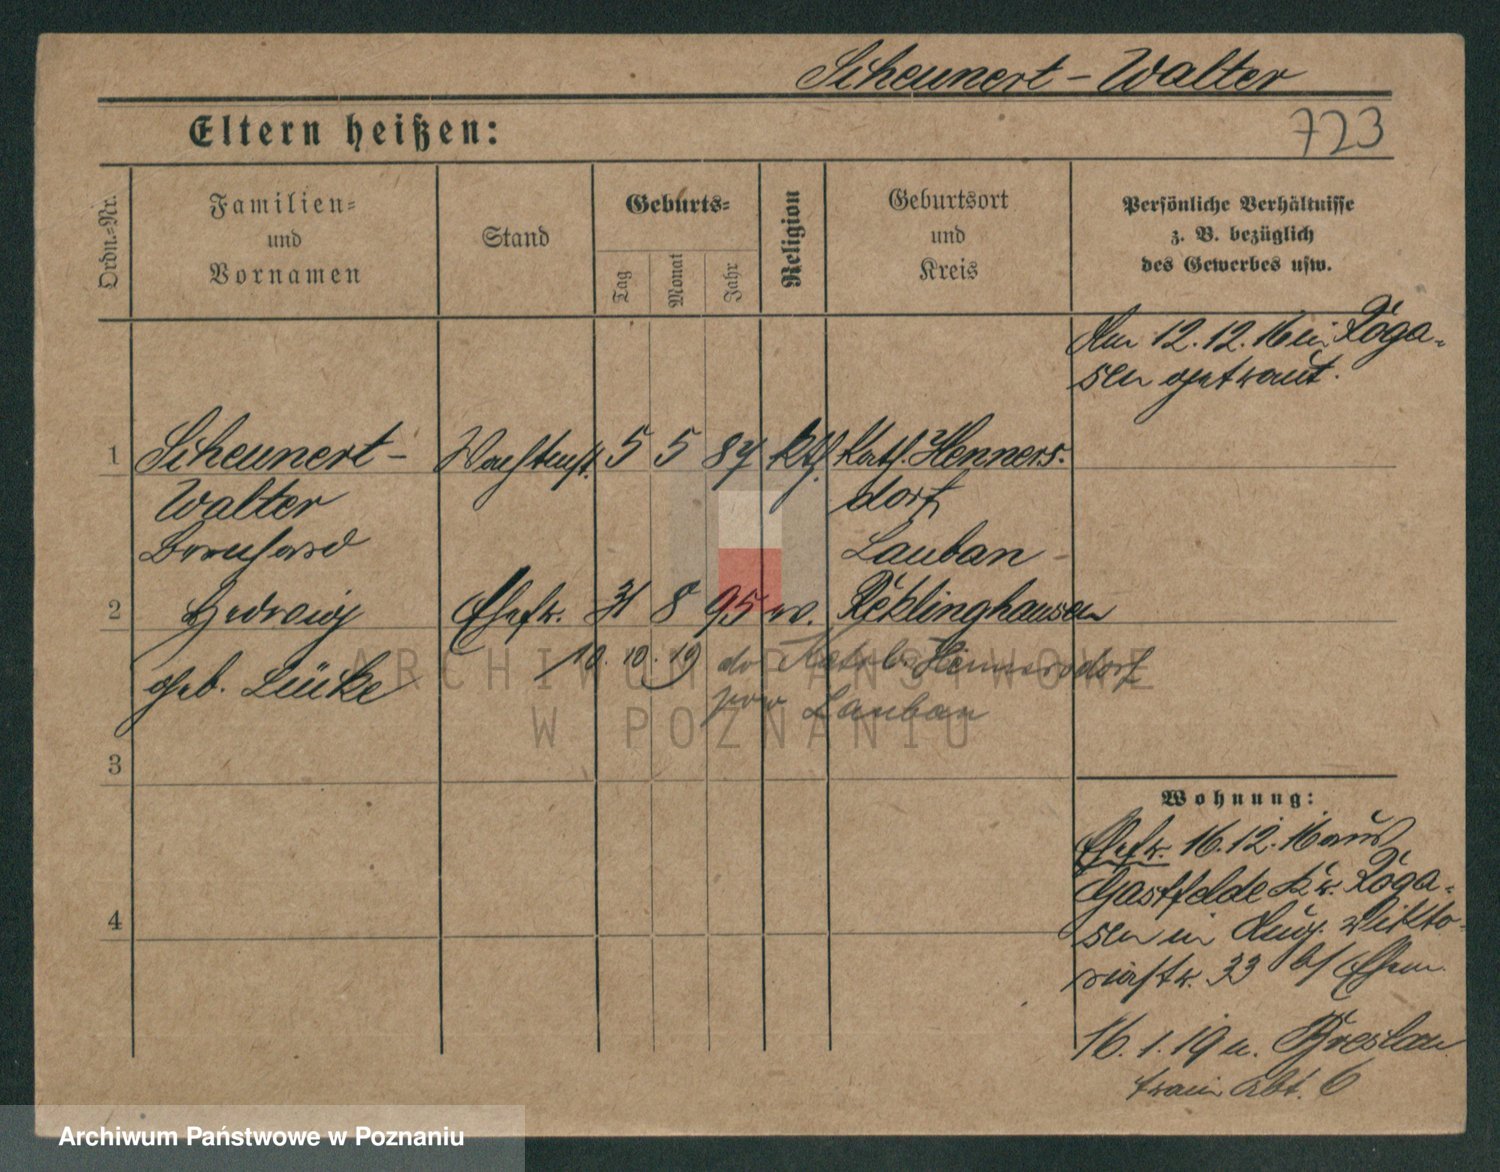 Scheunert-Walter
723
Eltern heißen:
Ordn.-Nr.
Familien-
und
Vornamen
Stand
Geburts-
Tag
Monat
Jahr
Religion
Geburtsort
und
Kreis
Persönliche Verhältnisse
z. B. bezüglich
des Gewerbes usw.
Am 12.12.16 in Roga-
sen getraut.
1 Scheunert- 5 5 87 kth. Kath. Henners-
Walter dorf
Bernhard Lauban
2 Hedwig Ehefr. 31 8 95 w. Recklinghausen
geb. Lücke 10.10.19 Kath. Hennersdorf
Lauban
3
4
Wohnung:
Ehefr. 16.12.16 aus
Gastfelde Kr. Roga-
sen in Aug. Vikto-
riastr. 33 b/ Ehem.
16.1.19 n. Breslau
Train Abt. 6
ARCHIWUM PAŃSTWOWE
W POZNANIU
Archiwum Państwowe w Poznaniu